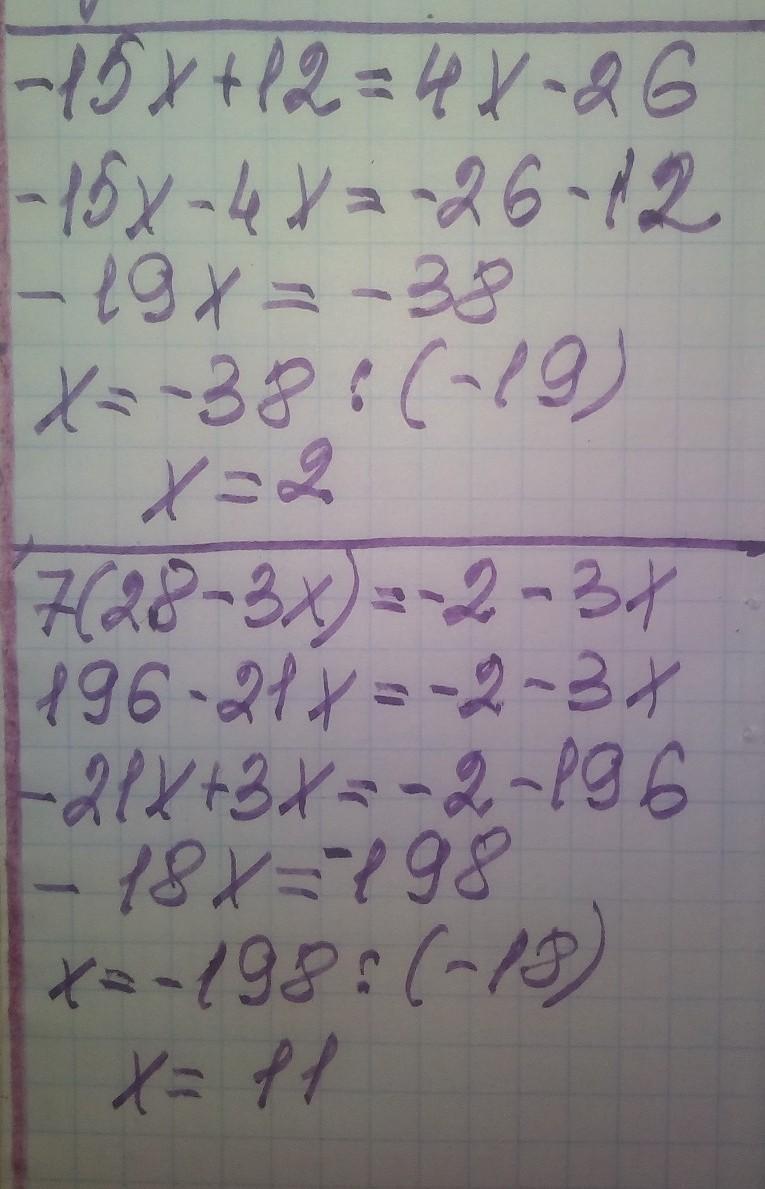 -15x+12=4x-26
-15x-4x=-26-12
-19x=-38
x=-38:(-19)
x=2
7(28-3x)=-2-3x
196-21x=-2-3x
-21x+3x=-2-196
-18x=-198
x=-198:(-18)
x=11